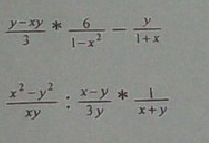 (y-xy)/3 * 6/(1-x²) - y/(1+x)
(x²-y²)/(xy) : (x-y)/(3y) * 1/(x+y)